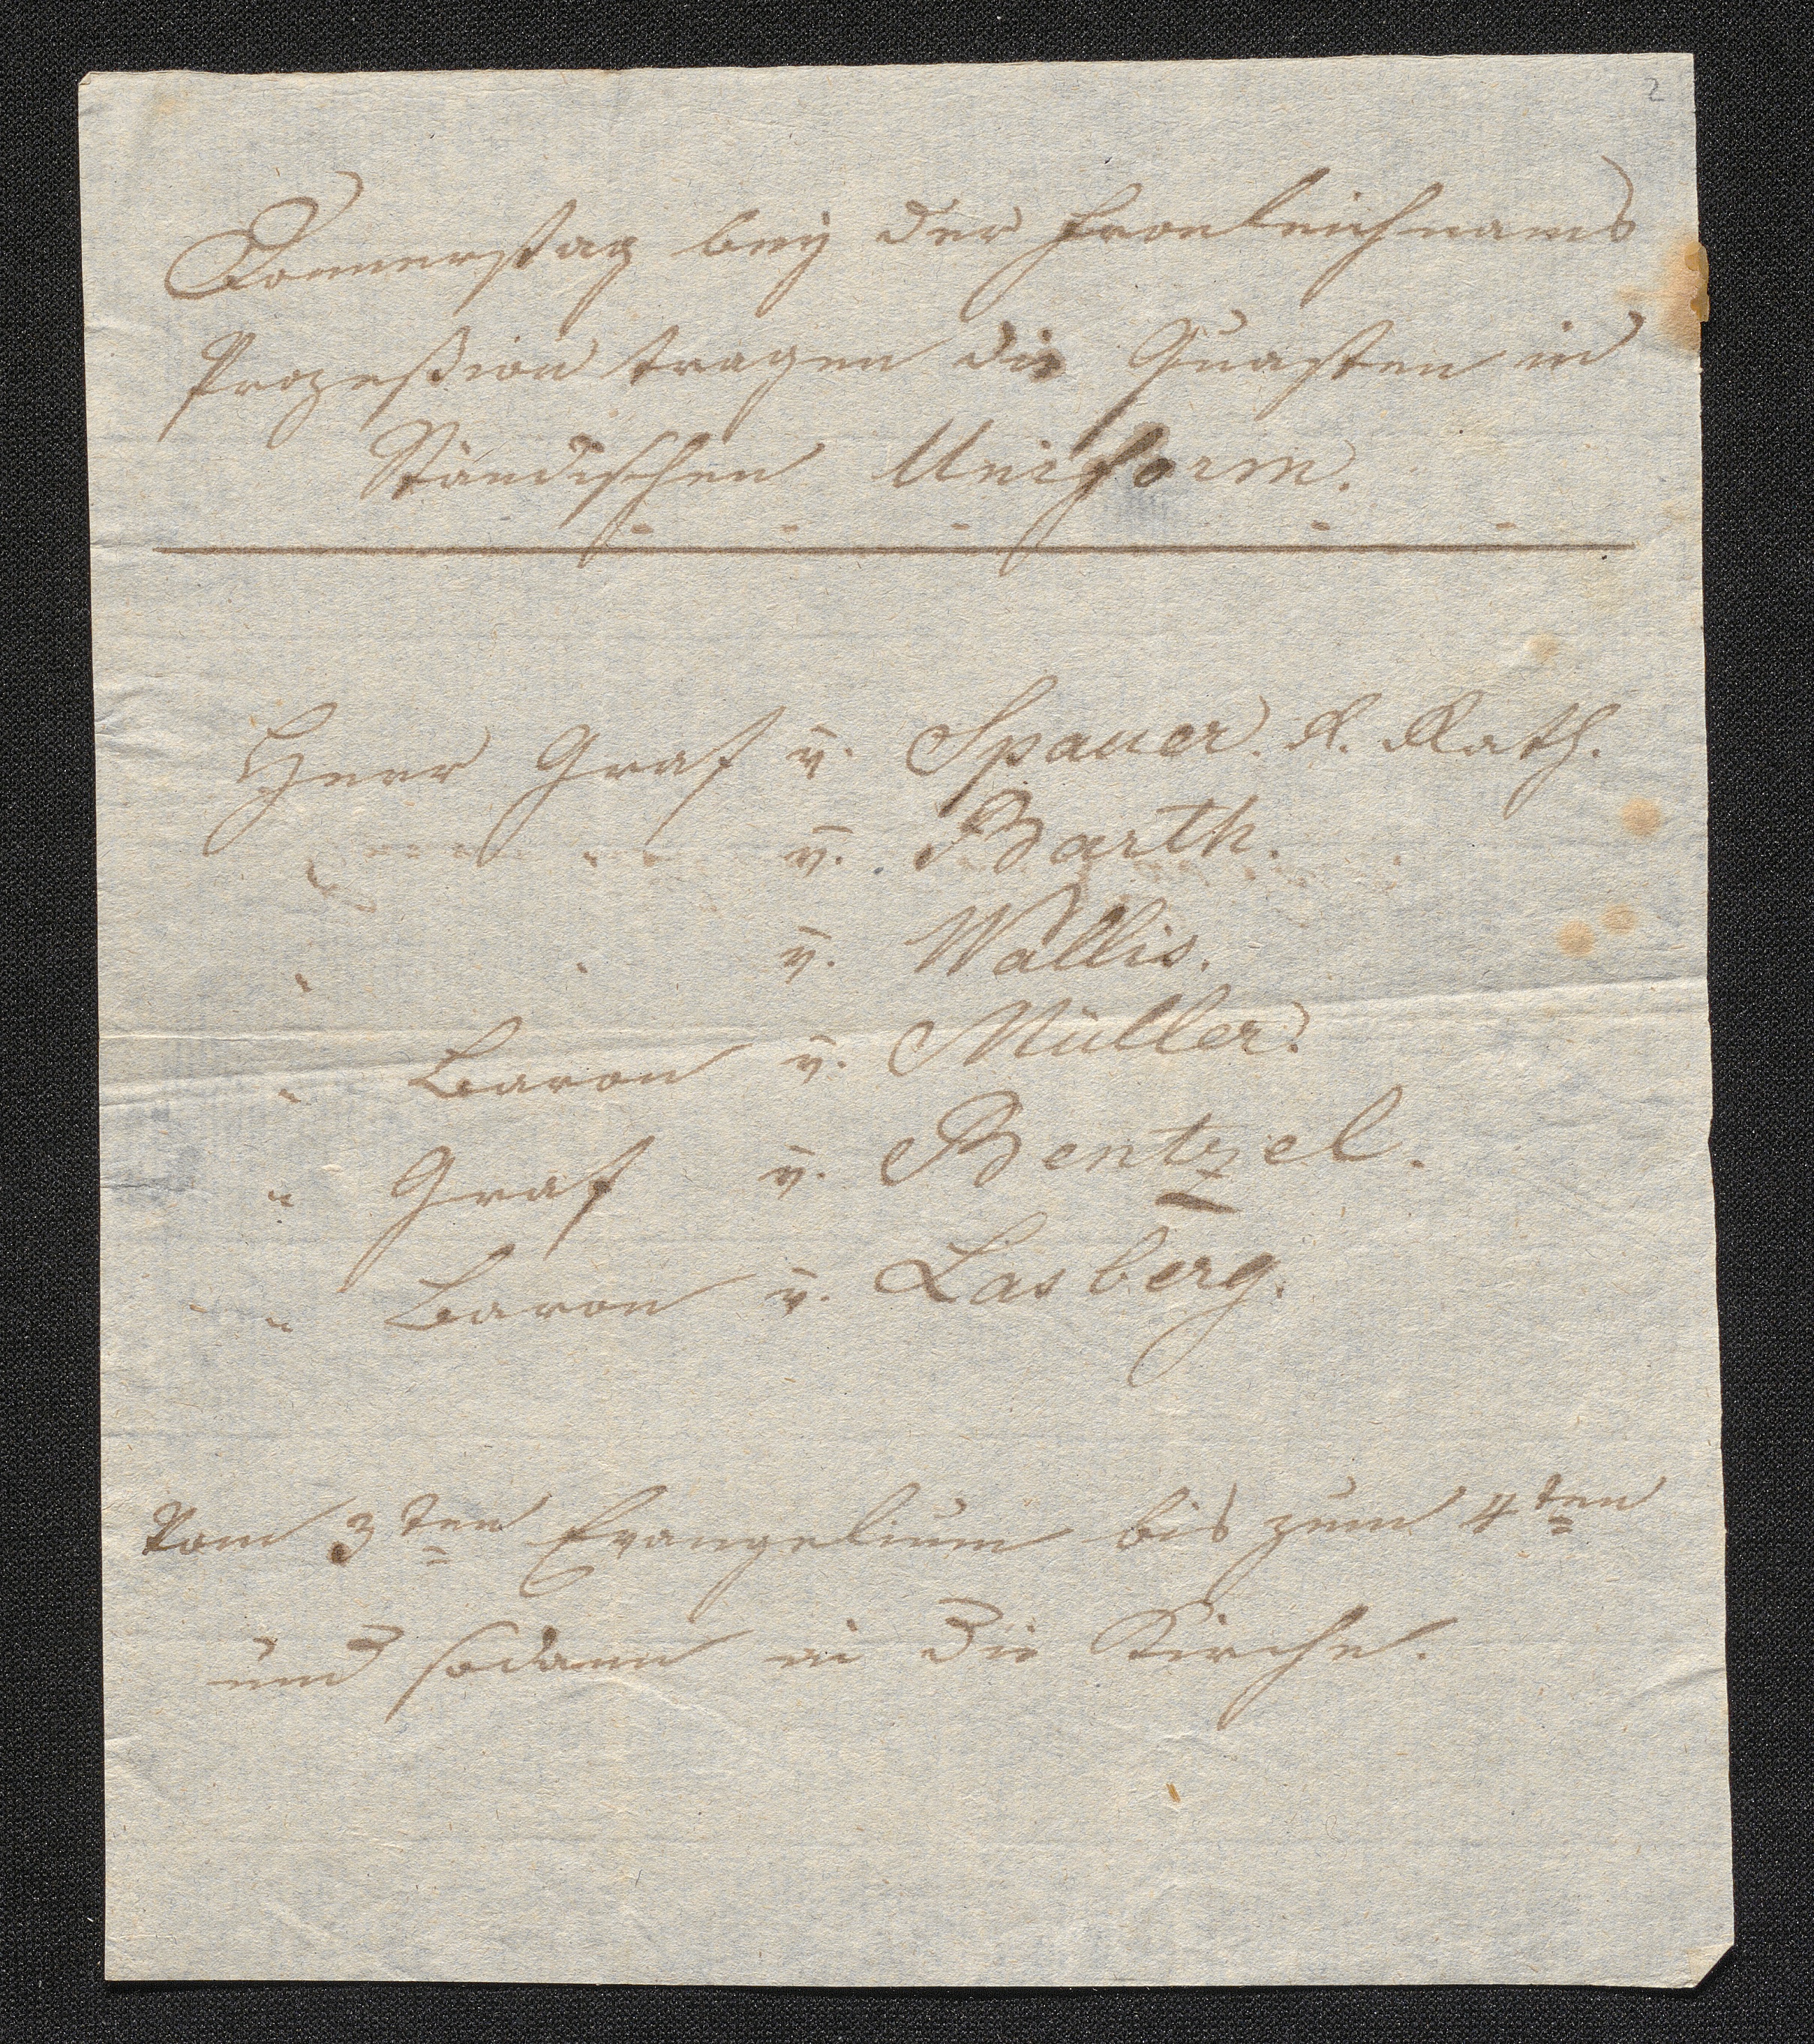 2
Donnerstag beÿ der Fronleichnams
Prozeßion tragen die Quasten in
Ständischen Uniform.
Herr Graf v. Spauer. R. Rath.
" " v. Barth.
" " v. Wallis.
" Baron v. Müller.
" Graf v. Bentzel.
" Baron v. Lasberg.
Vom 3ten Evangelium bis zum 4ten
und sodann in die Kirche.